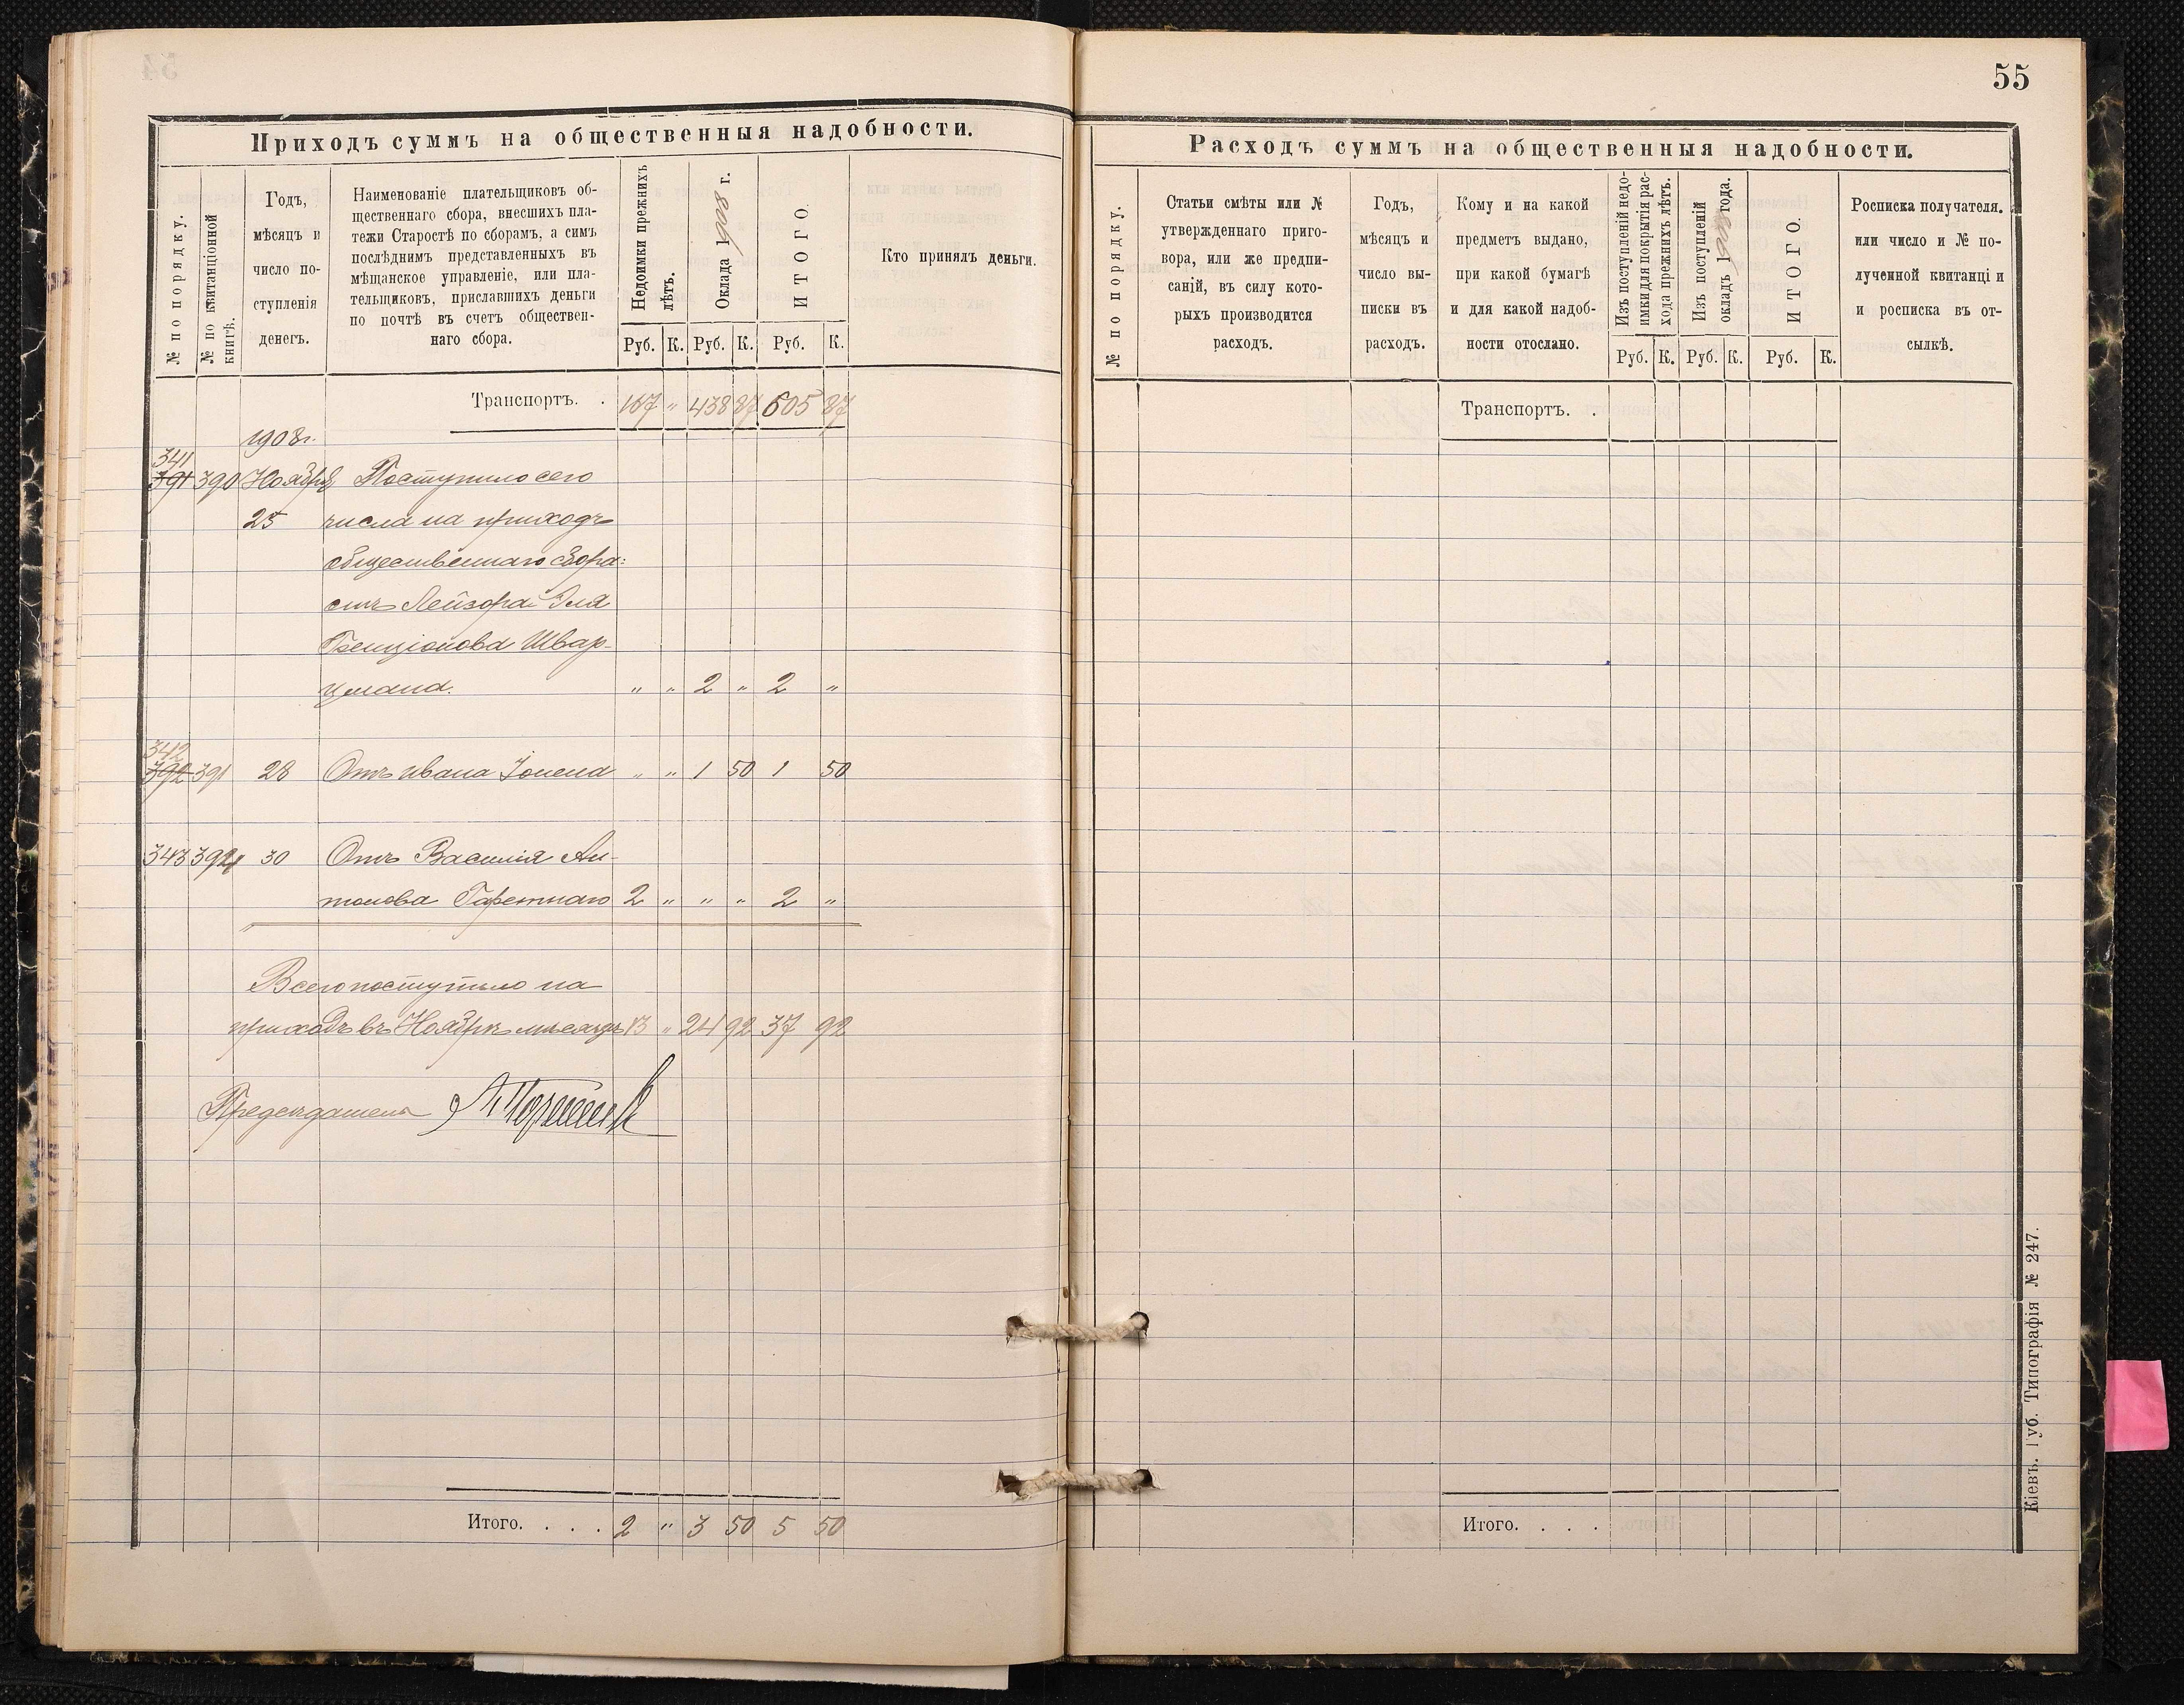 55
Приходъ суммъ на общественныя надобности.
№ по порядку.
№ по квитанціонной
книгѣ.
Годъ,
мѣсяцъ и
число по-
ступленія
денегъ.
Наименованіе плательщиковъ об-
щественнаго сбора, внесшихъ пла-
тежи Старостѣ по сборамъ, а симъ
послѣднимъ представленныхъ въ
мѣщанское управленіе, или пла-
тельщиковъ, приславшихъ деньги
по почтѣ въ счетъ обществен-
наго сбора.
Недоимки прежнихъ
лѣтъ.
Оклада 1908 г.
ИТОГО.
Кто принялъ деньги.
Руб. К. Руб. К. Руб. К.
Транспортъ. . 167 " 438 87 605 87
1908 г.
341
391 390 Ноября Поступило сего
25 числа на приходъ
общественнаго сбора:
отъ Лейзора Эля
Бенціонова Швар-
цмана. " " 2 " 2 "
342
392 391 28 Отъ Ивана " " 1 50 1 50
343 392 30 Отъ Василія Ан-
тонова 2 " " " 2 "
Всего поступило на
приходъ въ Ноябрѣ мѣсяцѣ 13 " 24 92 37 92
Предсѣдатель
Итого. . . . 2 " 3 50 5 50
Расходъ суммъ на общественныя надобности.
№ по порядку.
Статьи смѣты или №
утвержденнаго приго-
вора, или же предпи-
саній, въ силу кото-
рыхъ производится
расходъ.
Годъ,
мѣсяцъ и
число вы-
писки въ
расходъ.
Кому и на какой
предметъ выдано,
при какой бумагѣ
и для какой надоб-
ности отослано.
Изъ поступленій недо-
имки для покрытія рас-
хода прежнихъ лѣтъ.
Изъ поступленій
окладъ 1908 года.
ИТОГО.
Росписка получателя.
или число и № по-
лученной квитанціи
и росписка въ от-
сылкѣ.
Руб. К. Руб. К. Руб. К.
Транспортъ. .
Итого. . . .
Кіевъ. Губ. Типографія № 247.